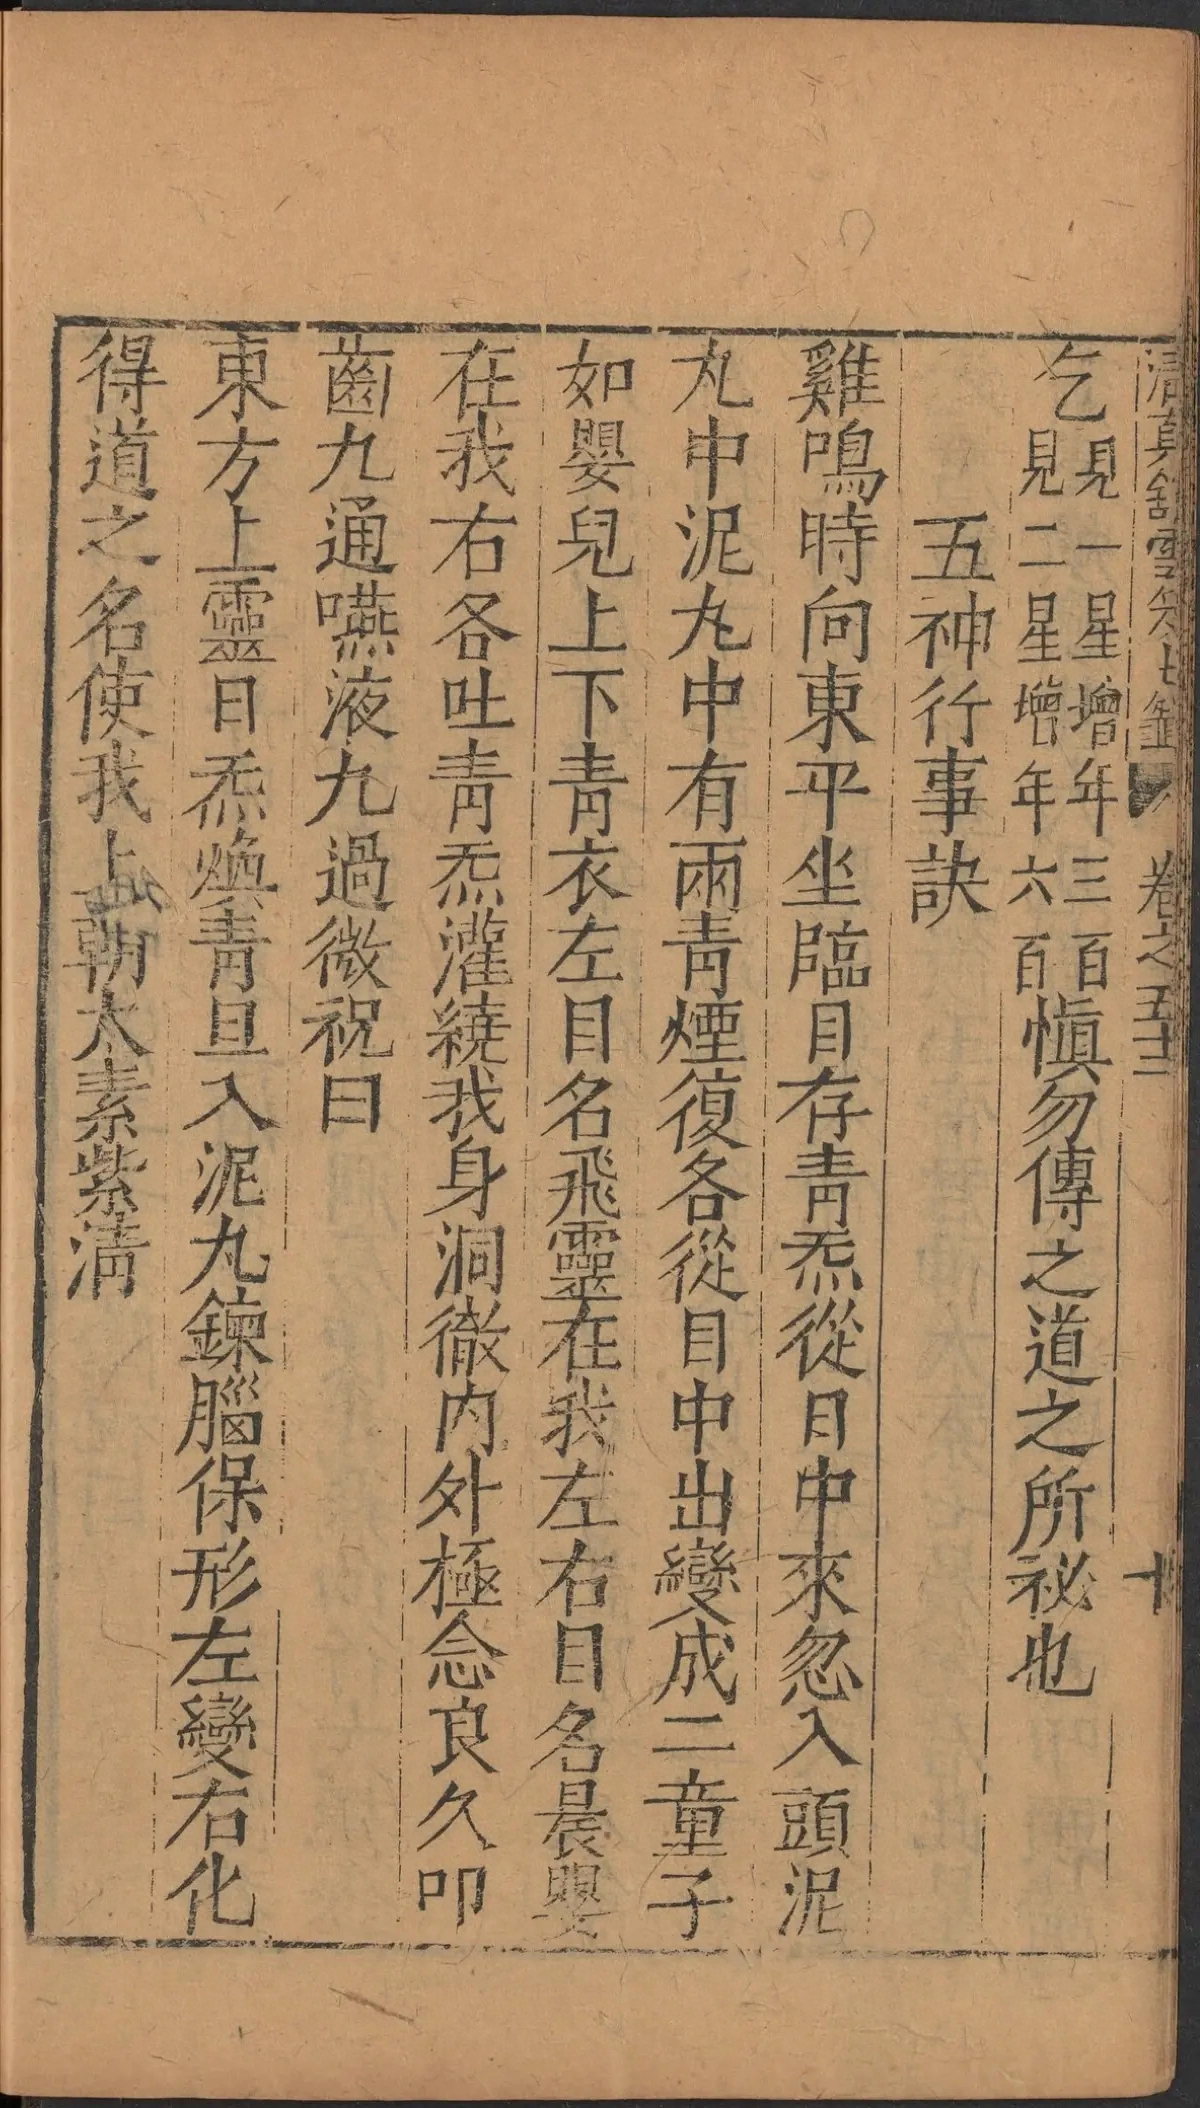 清真館雲笈七籤 卷之五十二 十
乞見一星增年三百見二星增年六百慎勿傳之道之所祕也
五神行事訣
雞鳴時向東平坐臨目存青炁從日中來忽入頭泥
丸中泥丸中有兩青煙復各從目中出變成二童子
如嬰兒上下青衣左目名飛靈在我左右目名晨嬰
在我右各吐青炁灌繞我身洞徹內外極念良久叩
齒九通嚥液九過微祝曰
東方上靈日炁煥青旦入泥丸鍊腦保形左變右化
得道之名使我上朝太素紫淸